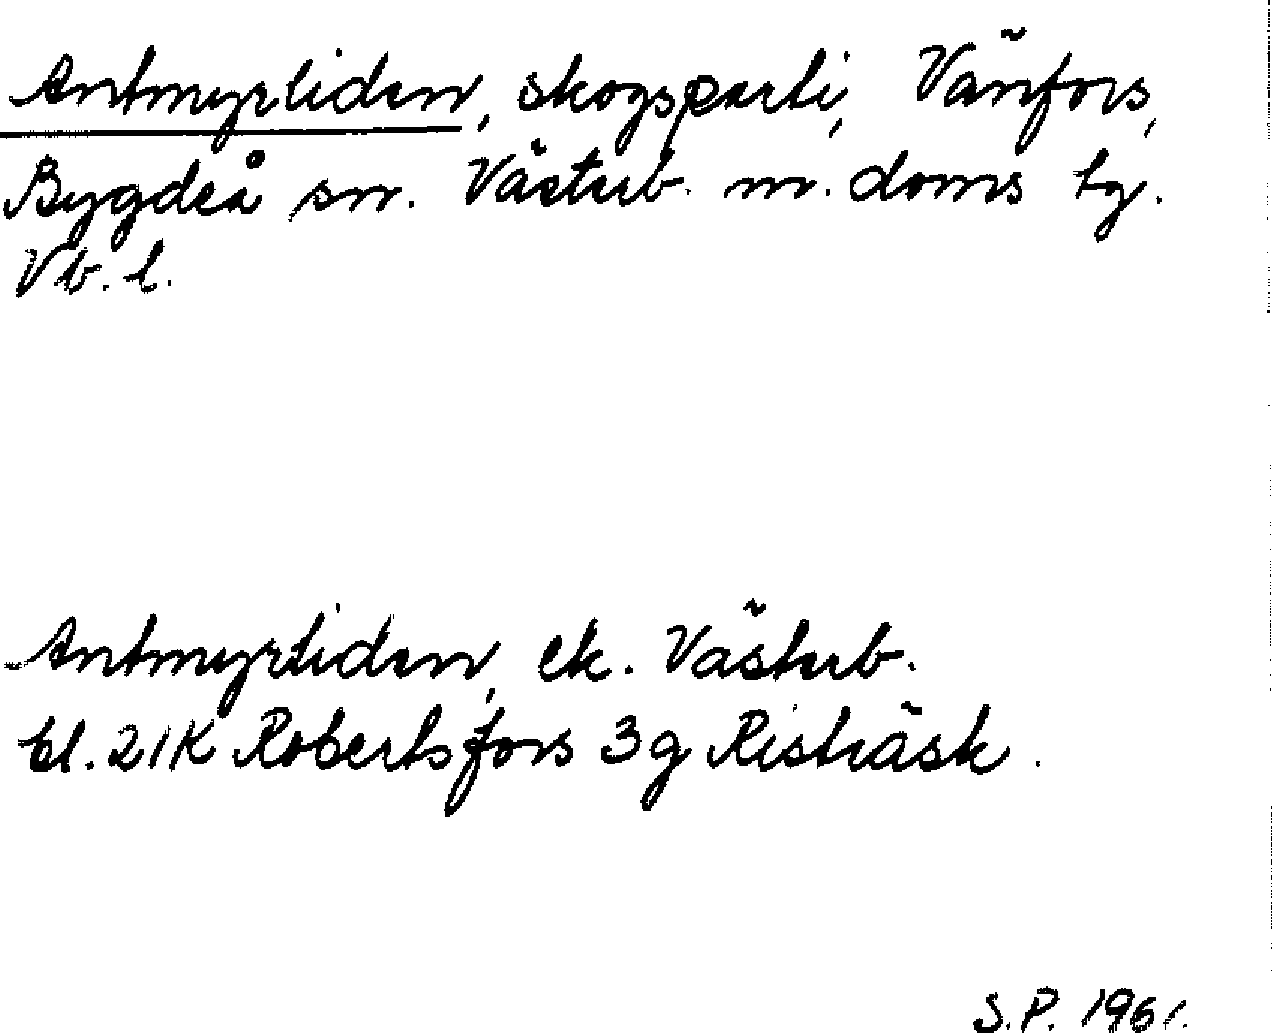 Antmyrliden, skogsparti, Vänfors,
Bygdeå sn. Västerb. n. doms tg.
Vb. l.
Antmyrliden, ek. Västerb.
bl. 21K Robertsfors 3g Risträsk.
S.P. 1961.